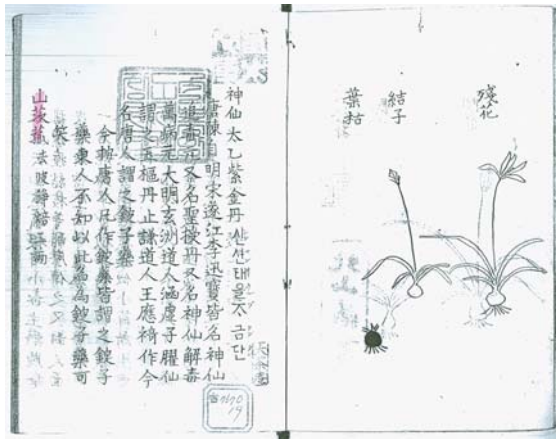 殘花
結子
葉枯
神仙太乙紫金丹 신션태을ᄌᆞ금단
唐陳自明宋遂江李迅寶皆名神仙
追毒丹又名聖授丹又名神仙解毒
萬病元大明玄洲道人涵虛子臞仙
謂之玉樞丹止謙道人王應禕作今
名唐人謂之錠子藥
一今按唐人凡作錠藥皆謂之錠子
藥東人不知以此為錠子藥可
笑
山茨菰 去皮